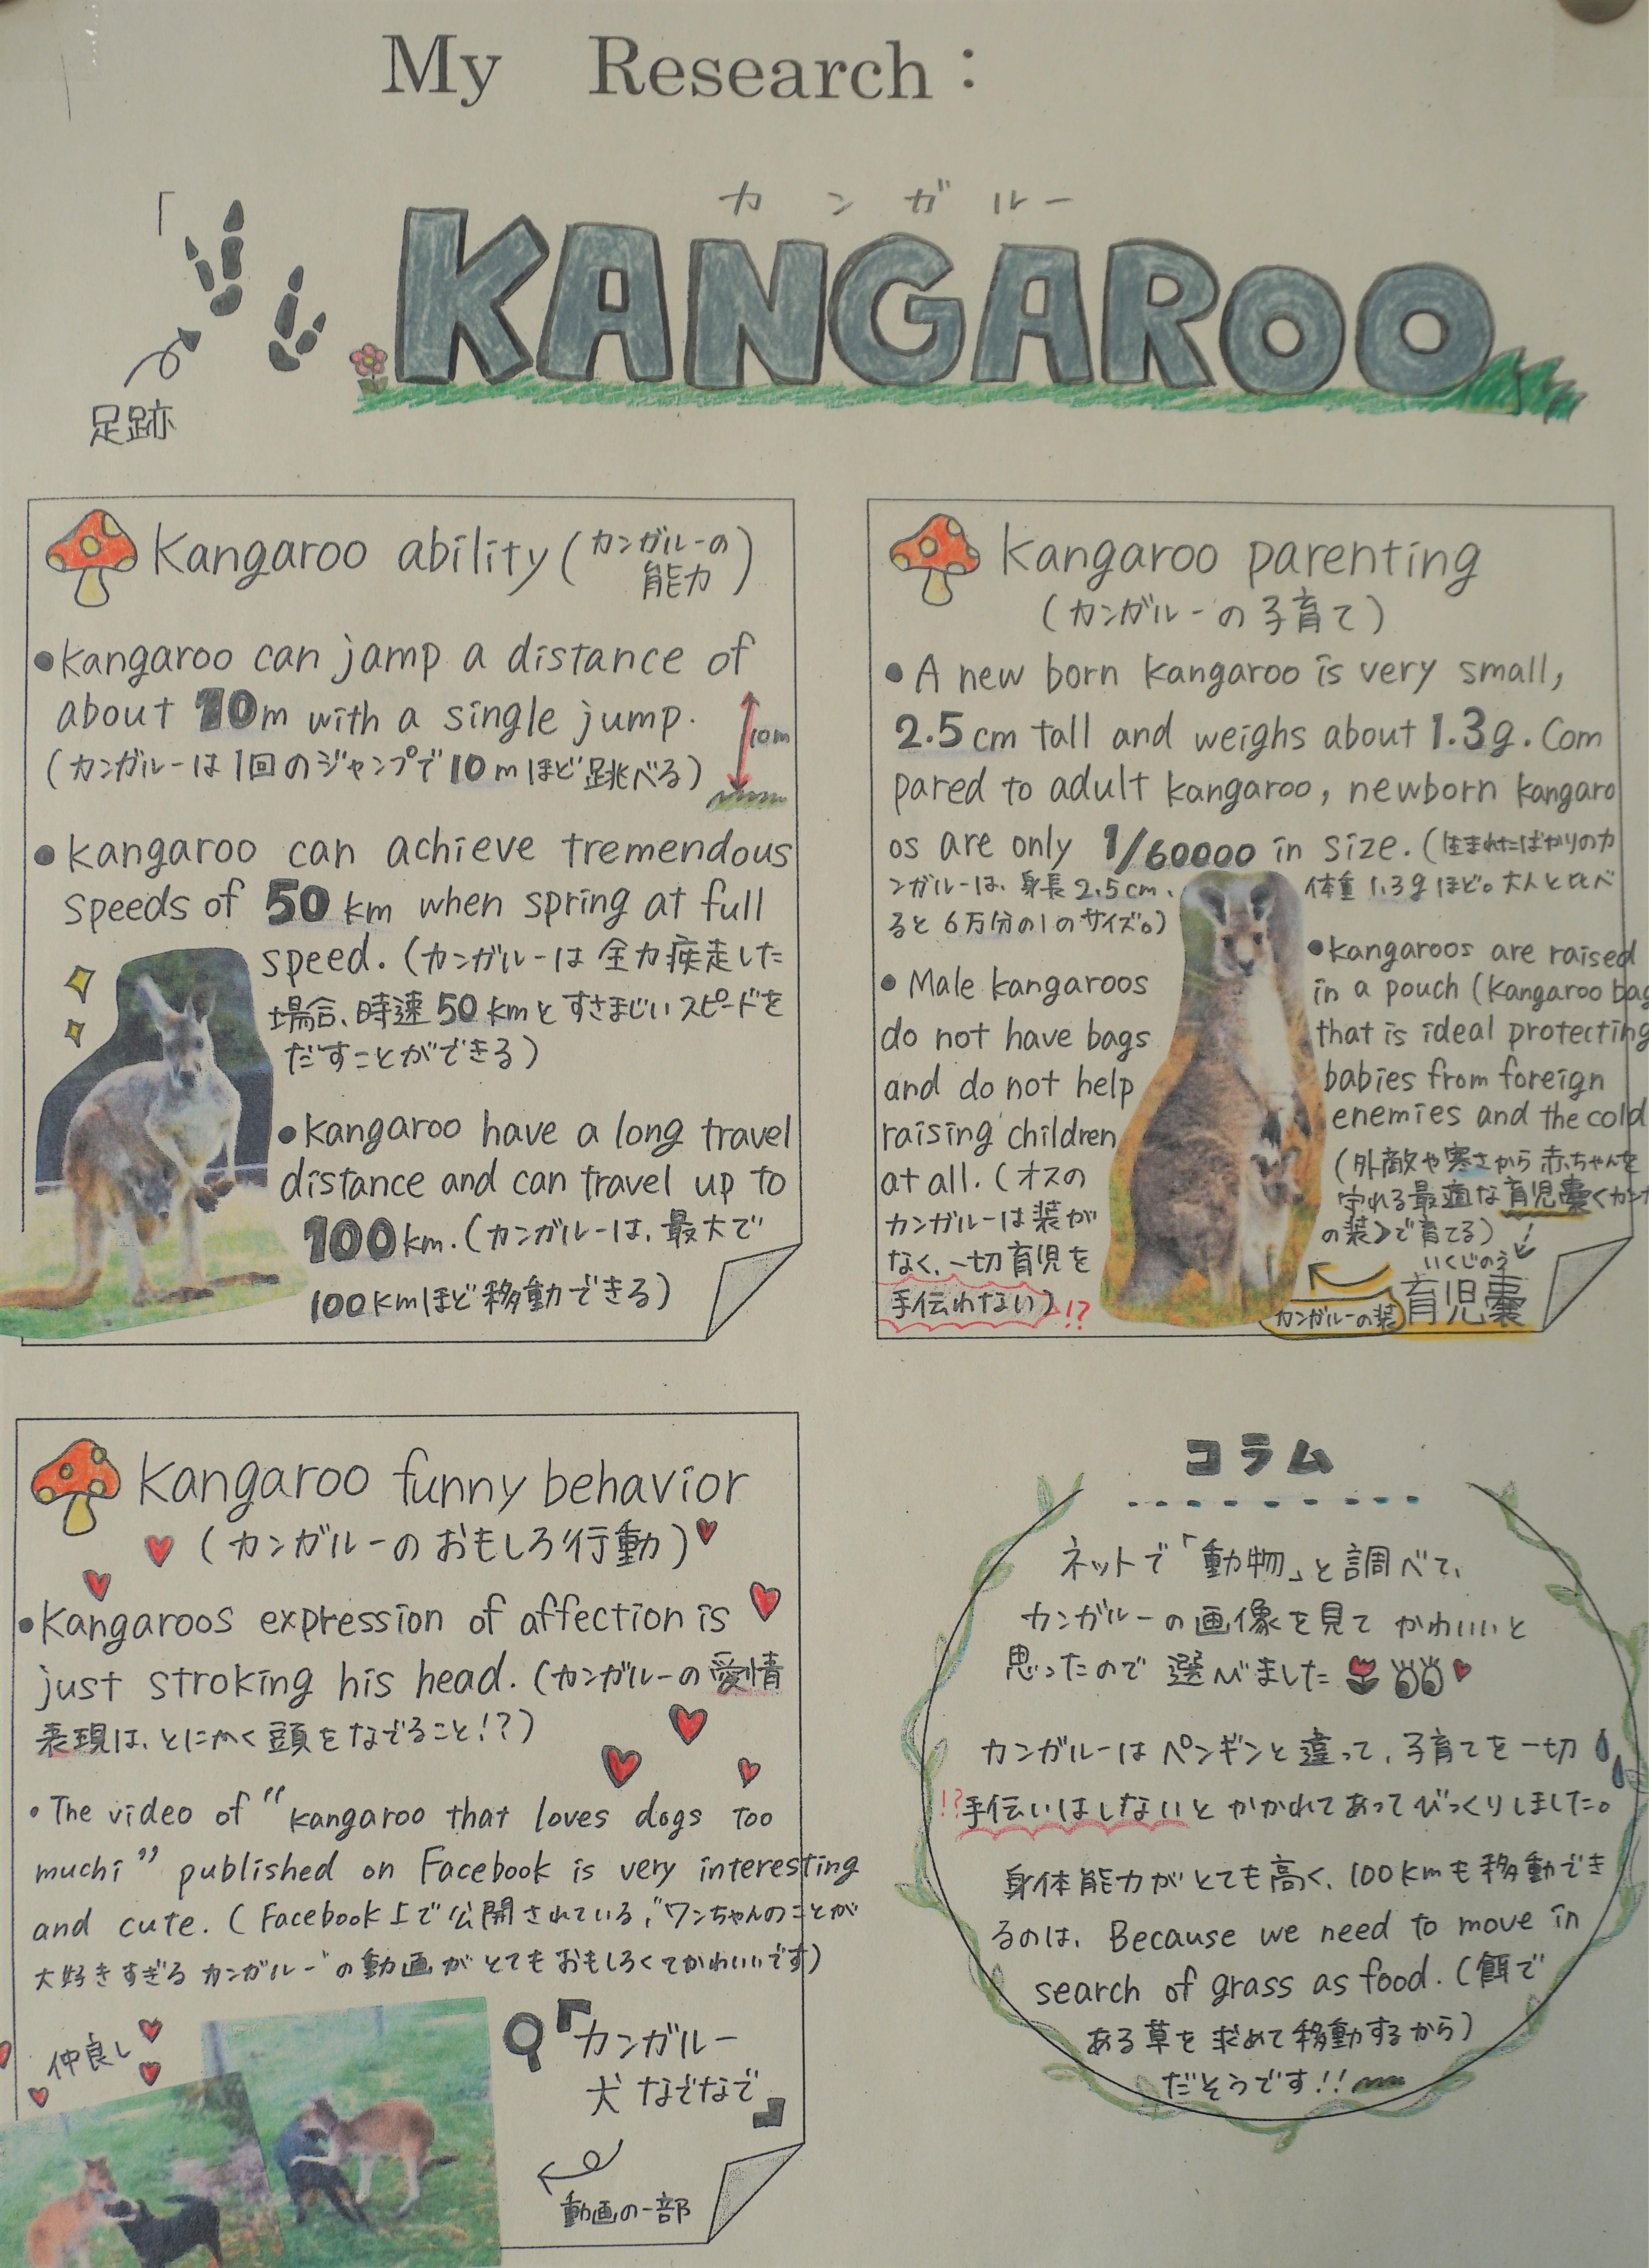 My Research:
カンガルー
KANGAROO
足跡
Kangaroo ability (カンガルーの
能力)
•kangaroo can jamp a distance of
about 10m with a single jump.
10m
(カンガルーは1回のジャンプで10mほど跳べる)
•kangaroo can achieve tremendous
speeds of 50 km when spring at full
speed. (カンガルーは全力疾走した
場合、時速50kmとすさまじいスピードを
だすことができる)
•kangaroo have a long travel
distance and can travel up to
100km. (カンガルーは、最大で
100kmほど移動できる)
Kangaroo parenting
(カンガルーの子育て)
•A new born kangaroo is very small,
2.5cm tall and weighs about 1.3g. Com
pared to adult kangaroo, newborn kangaro
os are only 1/60000 in size. (生まれたばかりのカ
ンガルーは、身長2.5cm、体重1.3gほど。大人と比べ
ると6万分の1のサイズ。)
•Male kangaroos
do not have bags
and do not help
raising children
at all. (オスの
カンガルーは装が
なく、一切育児を
手伝わない)!?
•kangaroos are raised
in a pouch (kangaroo bag
that is ideal protecting
babies from foreign
enemies and the cold
(外敵や寒さから赤ちゃんを
守れる最適な育児嚢<カンガ
の装>で育てる)
いくじのう
カンガルーの装 育児嚢
Kangaroo funny behavior
(カンガルーのおもしろ行動)
•Kangaroos expression of affection is
just stroking his head. (カンガルーの愛情
表現は、とにかく頭をなでること!?)
•The video of "kangaroo that loves dogs too
muchi" published on Facebook is very interesting
and cute. (Facebook上で公開されている、"ワンちゃんのことが
大好きすぎるカンガルー"の動画がとてもおもしろくてかわいいです)
仲良し
『カンガルー
犬 なでなで』
動画の一部
コラム
ネットで「動物」と調べて、
カンガルーの画像を見てかわいいと
思ったので選べました
カンガルーはペンギンと違って、子育てを一切
!?手伝いはしないとかかれてあってびっくりしました。
身体能力がとても高く、100kmも移動でき
るのは、Because we need to move in
search of grass as food. (餌で
ある草を求めて移動するから)
だそうです!!